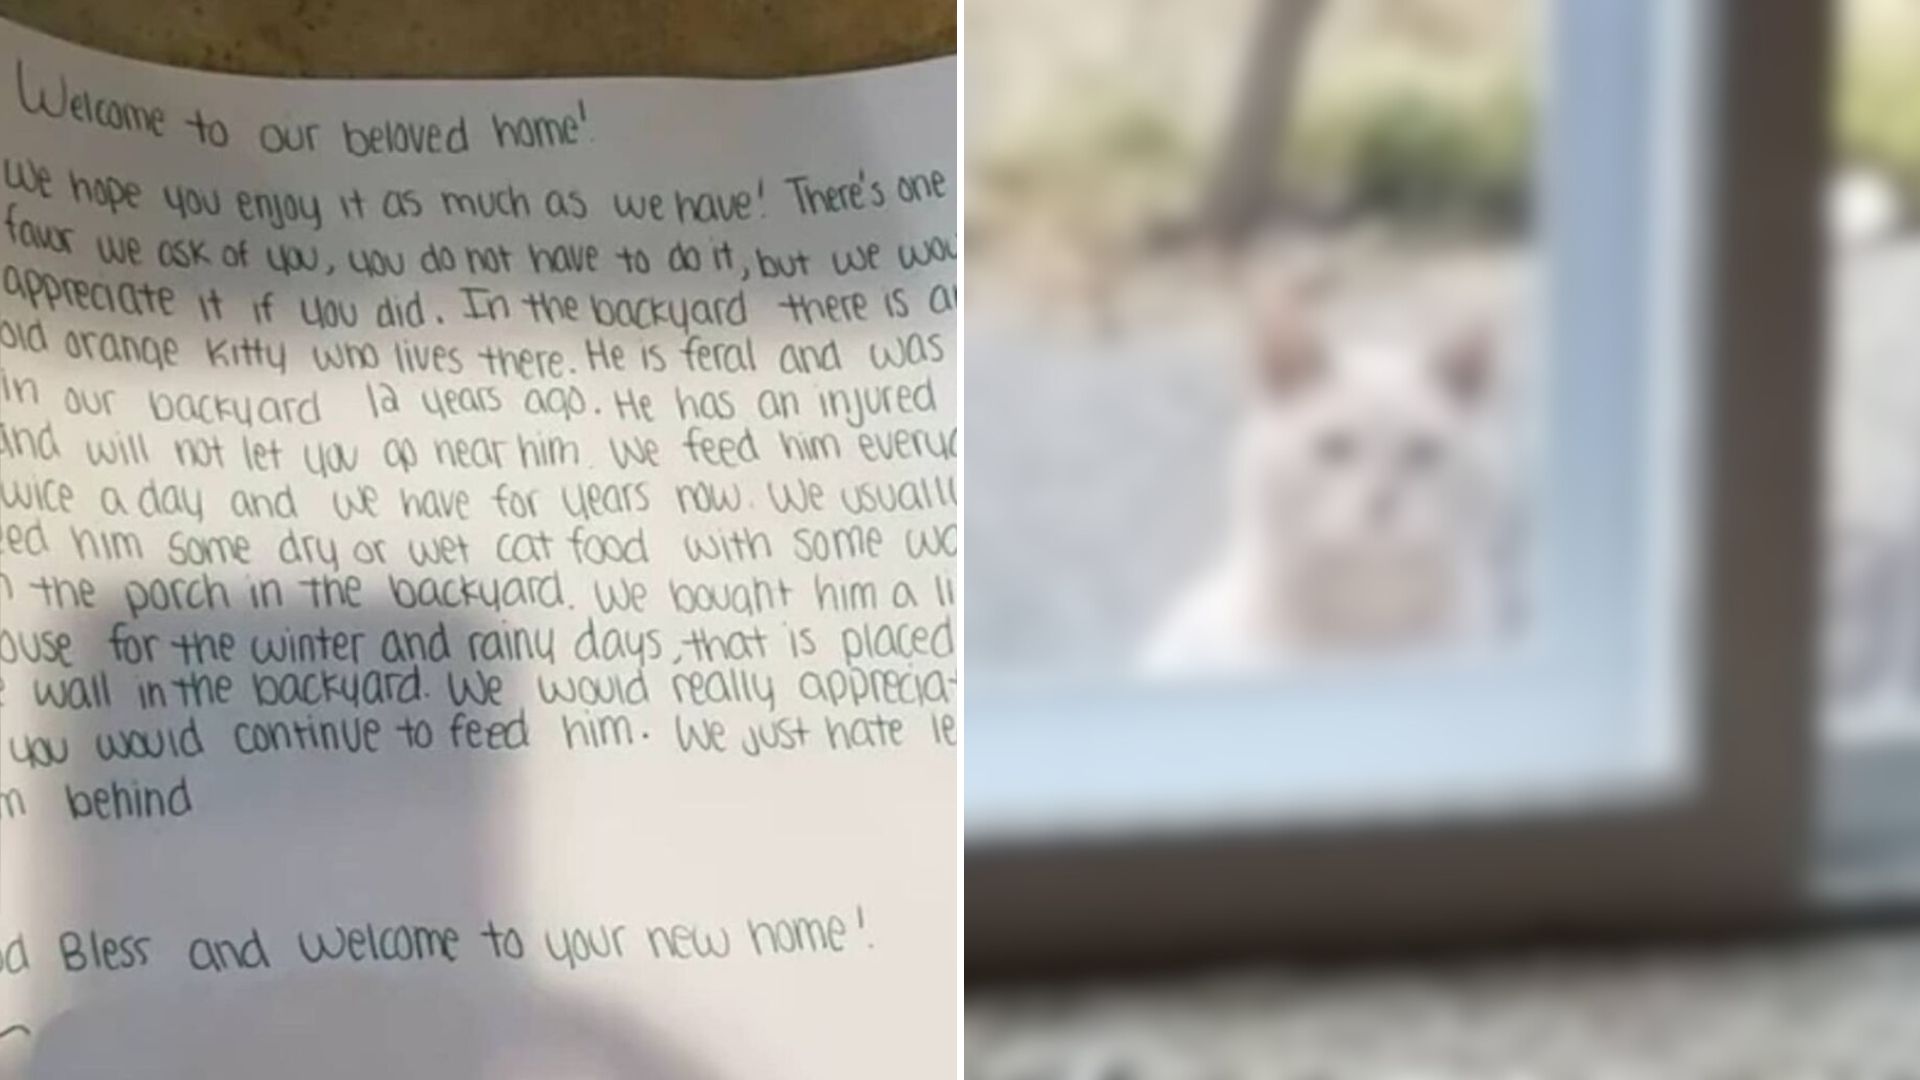 Welcome to our beloved home!
We hope you enjoy it as much as we have! There's one
favor we ask of you, you do not have to do it, but we
appreciate it if you did. In the backyard there is
old orange Kitty who lives there. He is feral and was
in our backyard 12 years ago. He has an injured
and will not let you go near him. We feed him
a day and we have for years now. We
him some dry or wet cat food with some
the porch in the backyard. We bought him a
for the winter and rainy days, that is placed
wall in the backyard. We would really
you would continue to feed him. We just hate
behind
Bless and welcome to your new home!